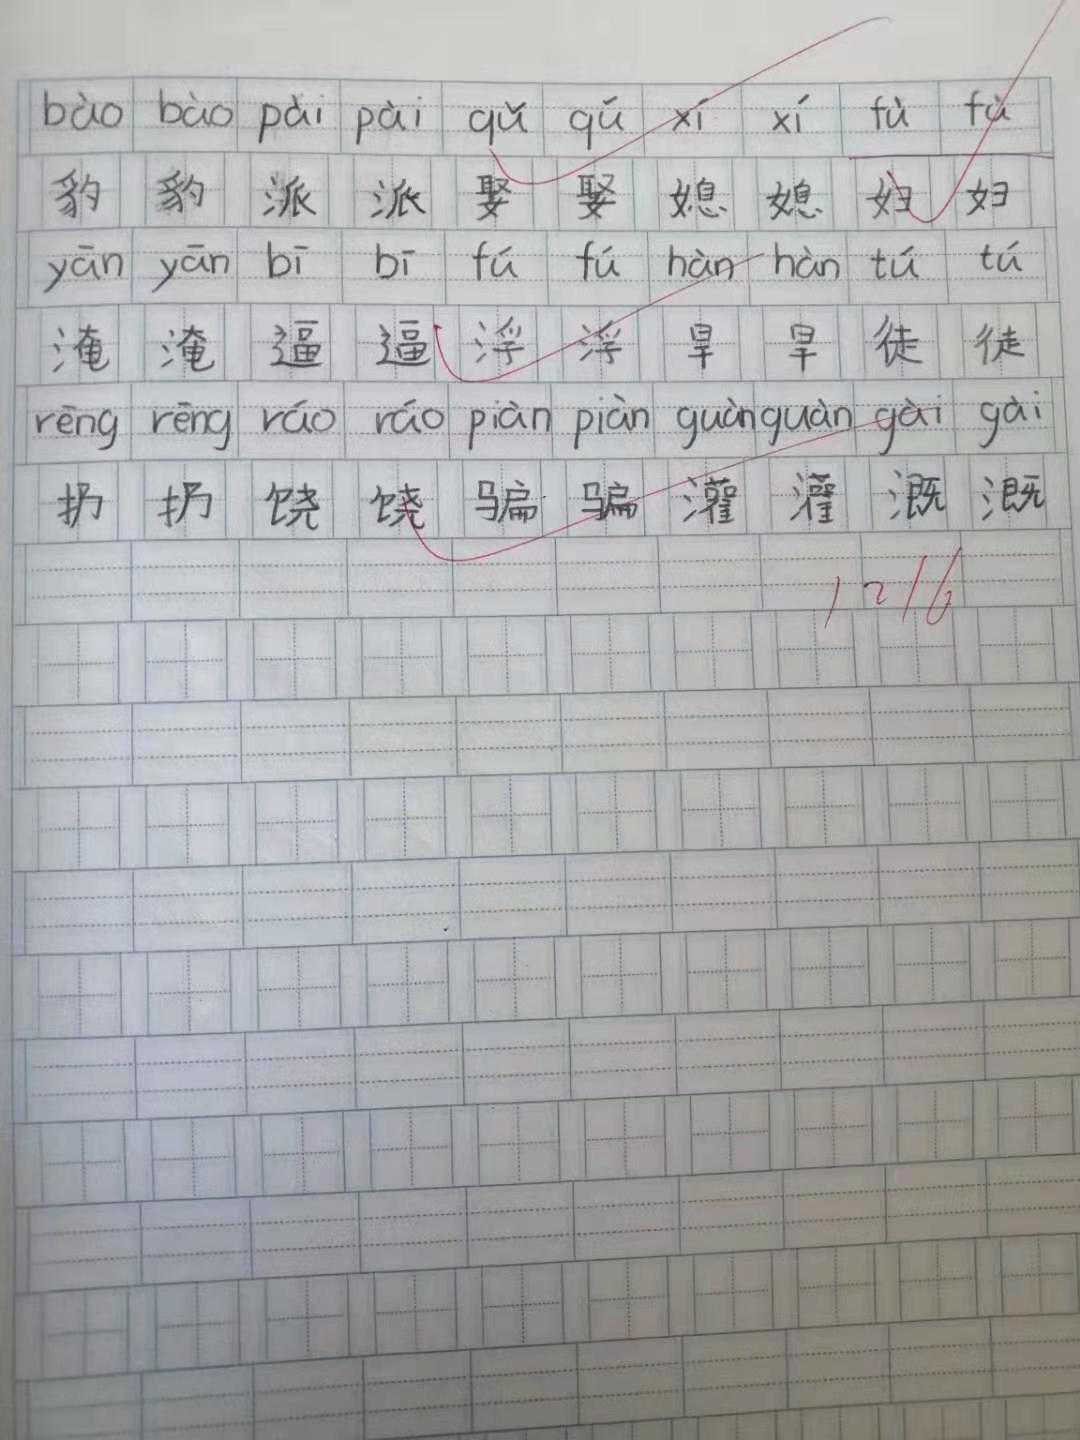 bào bào pài pài qǔ qǔ xí xí fù fù
豹 豹 派 派 娶 娶 媳 媳 妇 妇
yān yān bī bī fú fú hàn hàn tú tú
淹 淹 逼 逼 浮 浮 旱 旱 徒 徒
rēng rēng ráo ráo piàn piàn guàn guàn gài gài
扔 扔 饶 饶 骗 骗 灌 灌 溉 溉
12 16